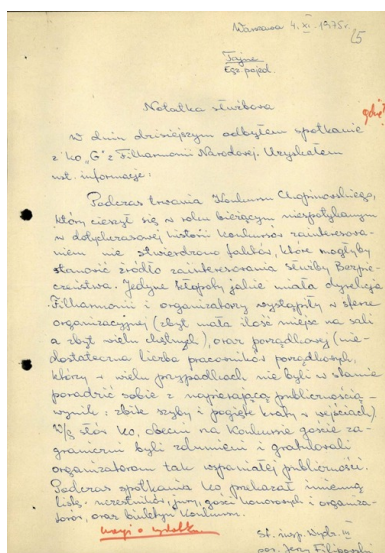 Warszawa 4.XI.1975r.
15
Tajne
Egz. pojed.
Notatka służbowa
W dniu dzisiejszym odbyłem spotkanie
z ko „G” z Filharmonii Narodowej. Uzyskałem
nast. informacje:
Podczas trwania Konkursu Chopinowskiego,
który cieszył się w roku bieżącym niespotykanym
w dotychczasowej historii konkursów zainteresowa-
niem nie stwierdzono faktów, które mogłyby
stanowić źródło zainteresowania Służby Bezpie-
czeństwa. Jedyne kłopoty jakie miała dyrekcja
Filharmonii i organizatorzy wystąpiły w sferze
organizacyjnej (zbyt mała ilość miejsc na sali
a zbyt wielu chętnych), oraz porządkowej (nie-
dostateczna liczba pracowników porządkowych,
którzy w wielu przypadkach nie byli w stanie
poradzić sobie z napierającą publicznością –
wynik: zbite szyby i pogięte kraty w wejściach)
W/g słów ko, obecni na Konkursie goście za-
graniczni byli zdumieni i gratulowali
organizatorom tak wspaniałej publiczności.
Podczas spotkania ko przekazał imienną
listę: uczestników, jury, gości honorowych i organiza-
torów, oraz biuletyn konkursu.
st. insp. Wydz. III